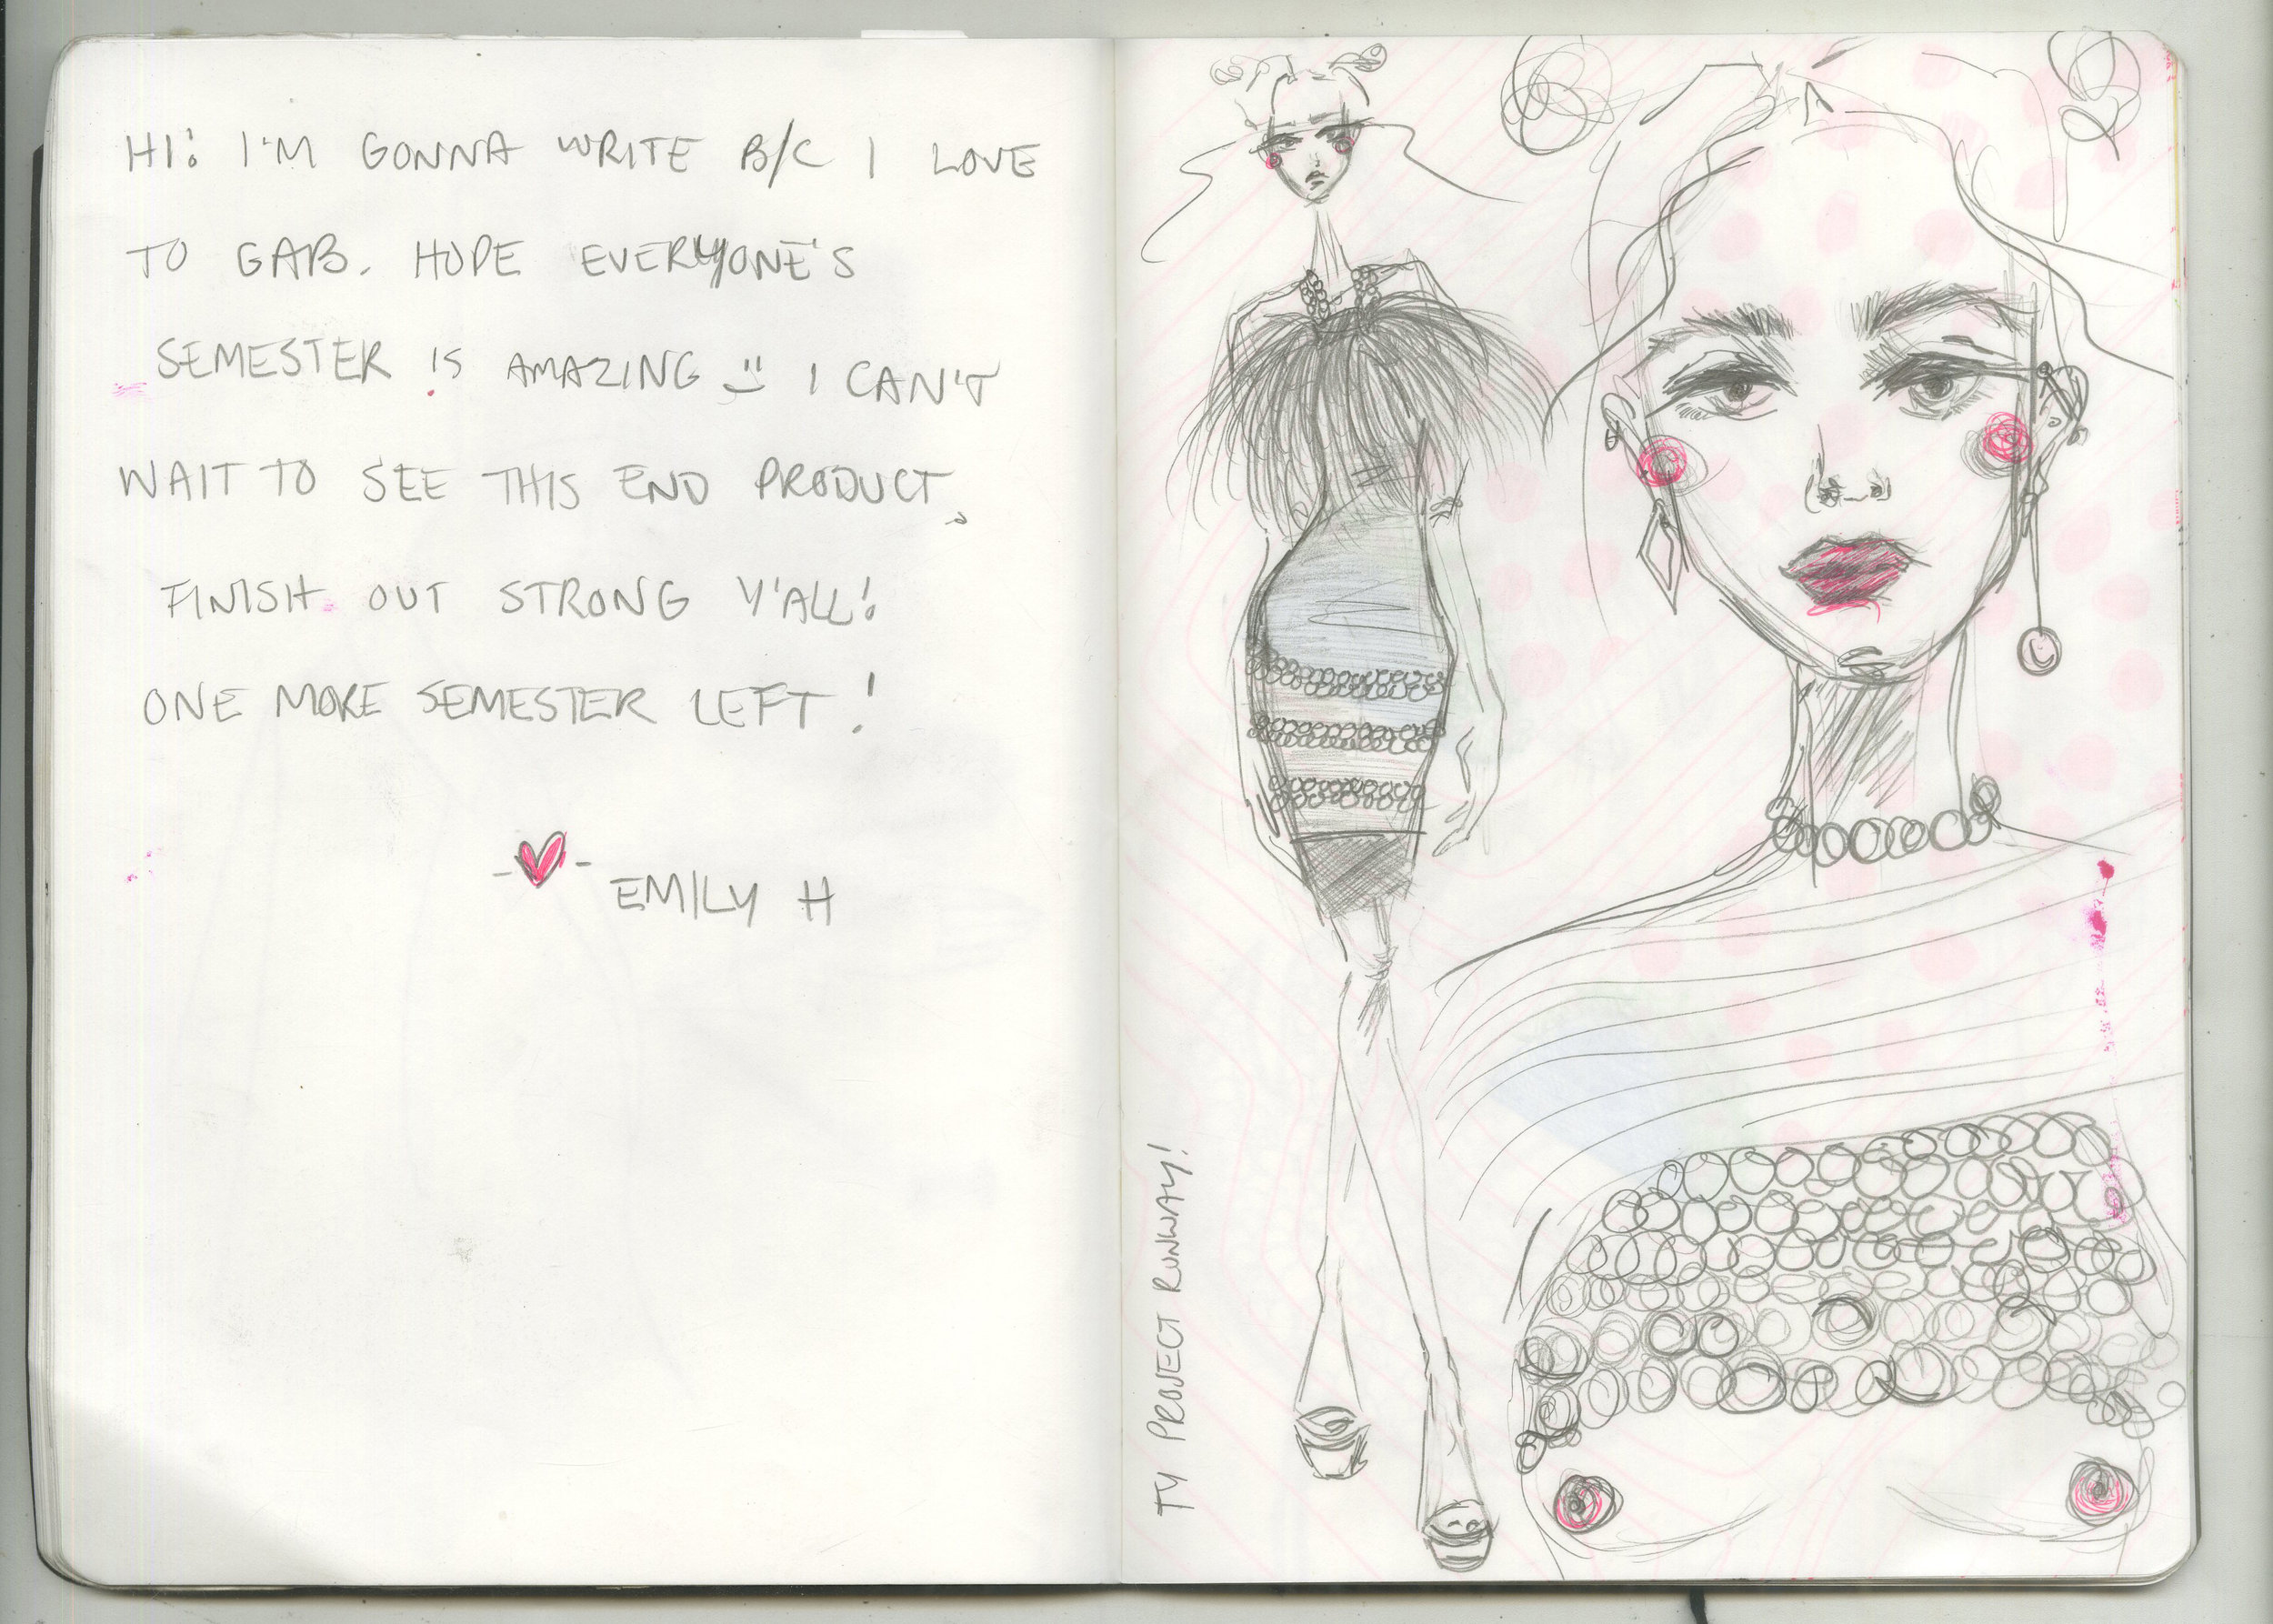 HI! I'M GONNA WRITE B/C I LOVE
TO GAB. HOPE EVERYONE'S
SEMESTER IS AMAZING I CAN'T
WAIT TO SEE THIS END PRODUCT.
FINISH OUT STRONG Y'ALL!
ONE MORE SEMESTER LEFT!
- ♥ - EMILY H
TY PROJECT RUNWAY!